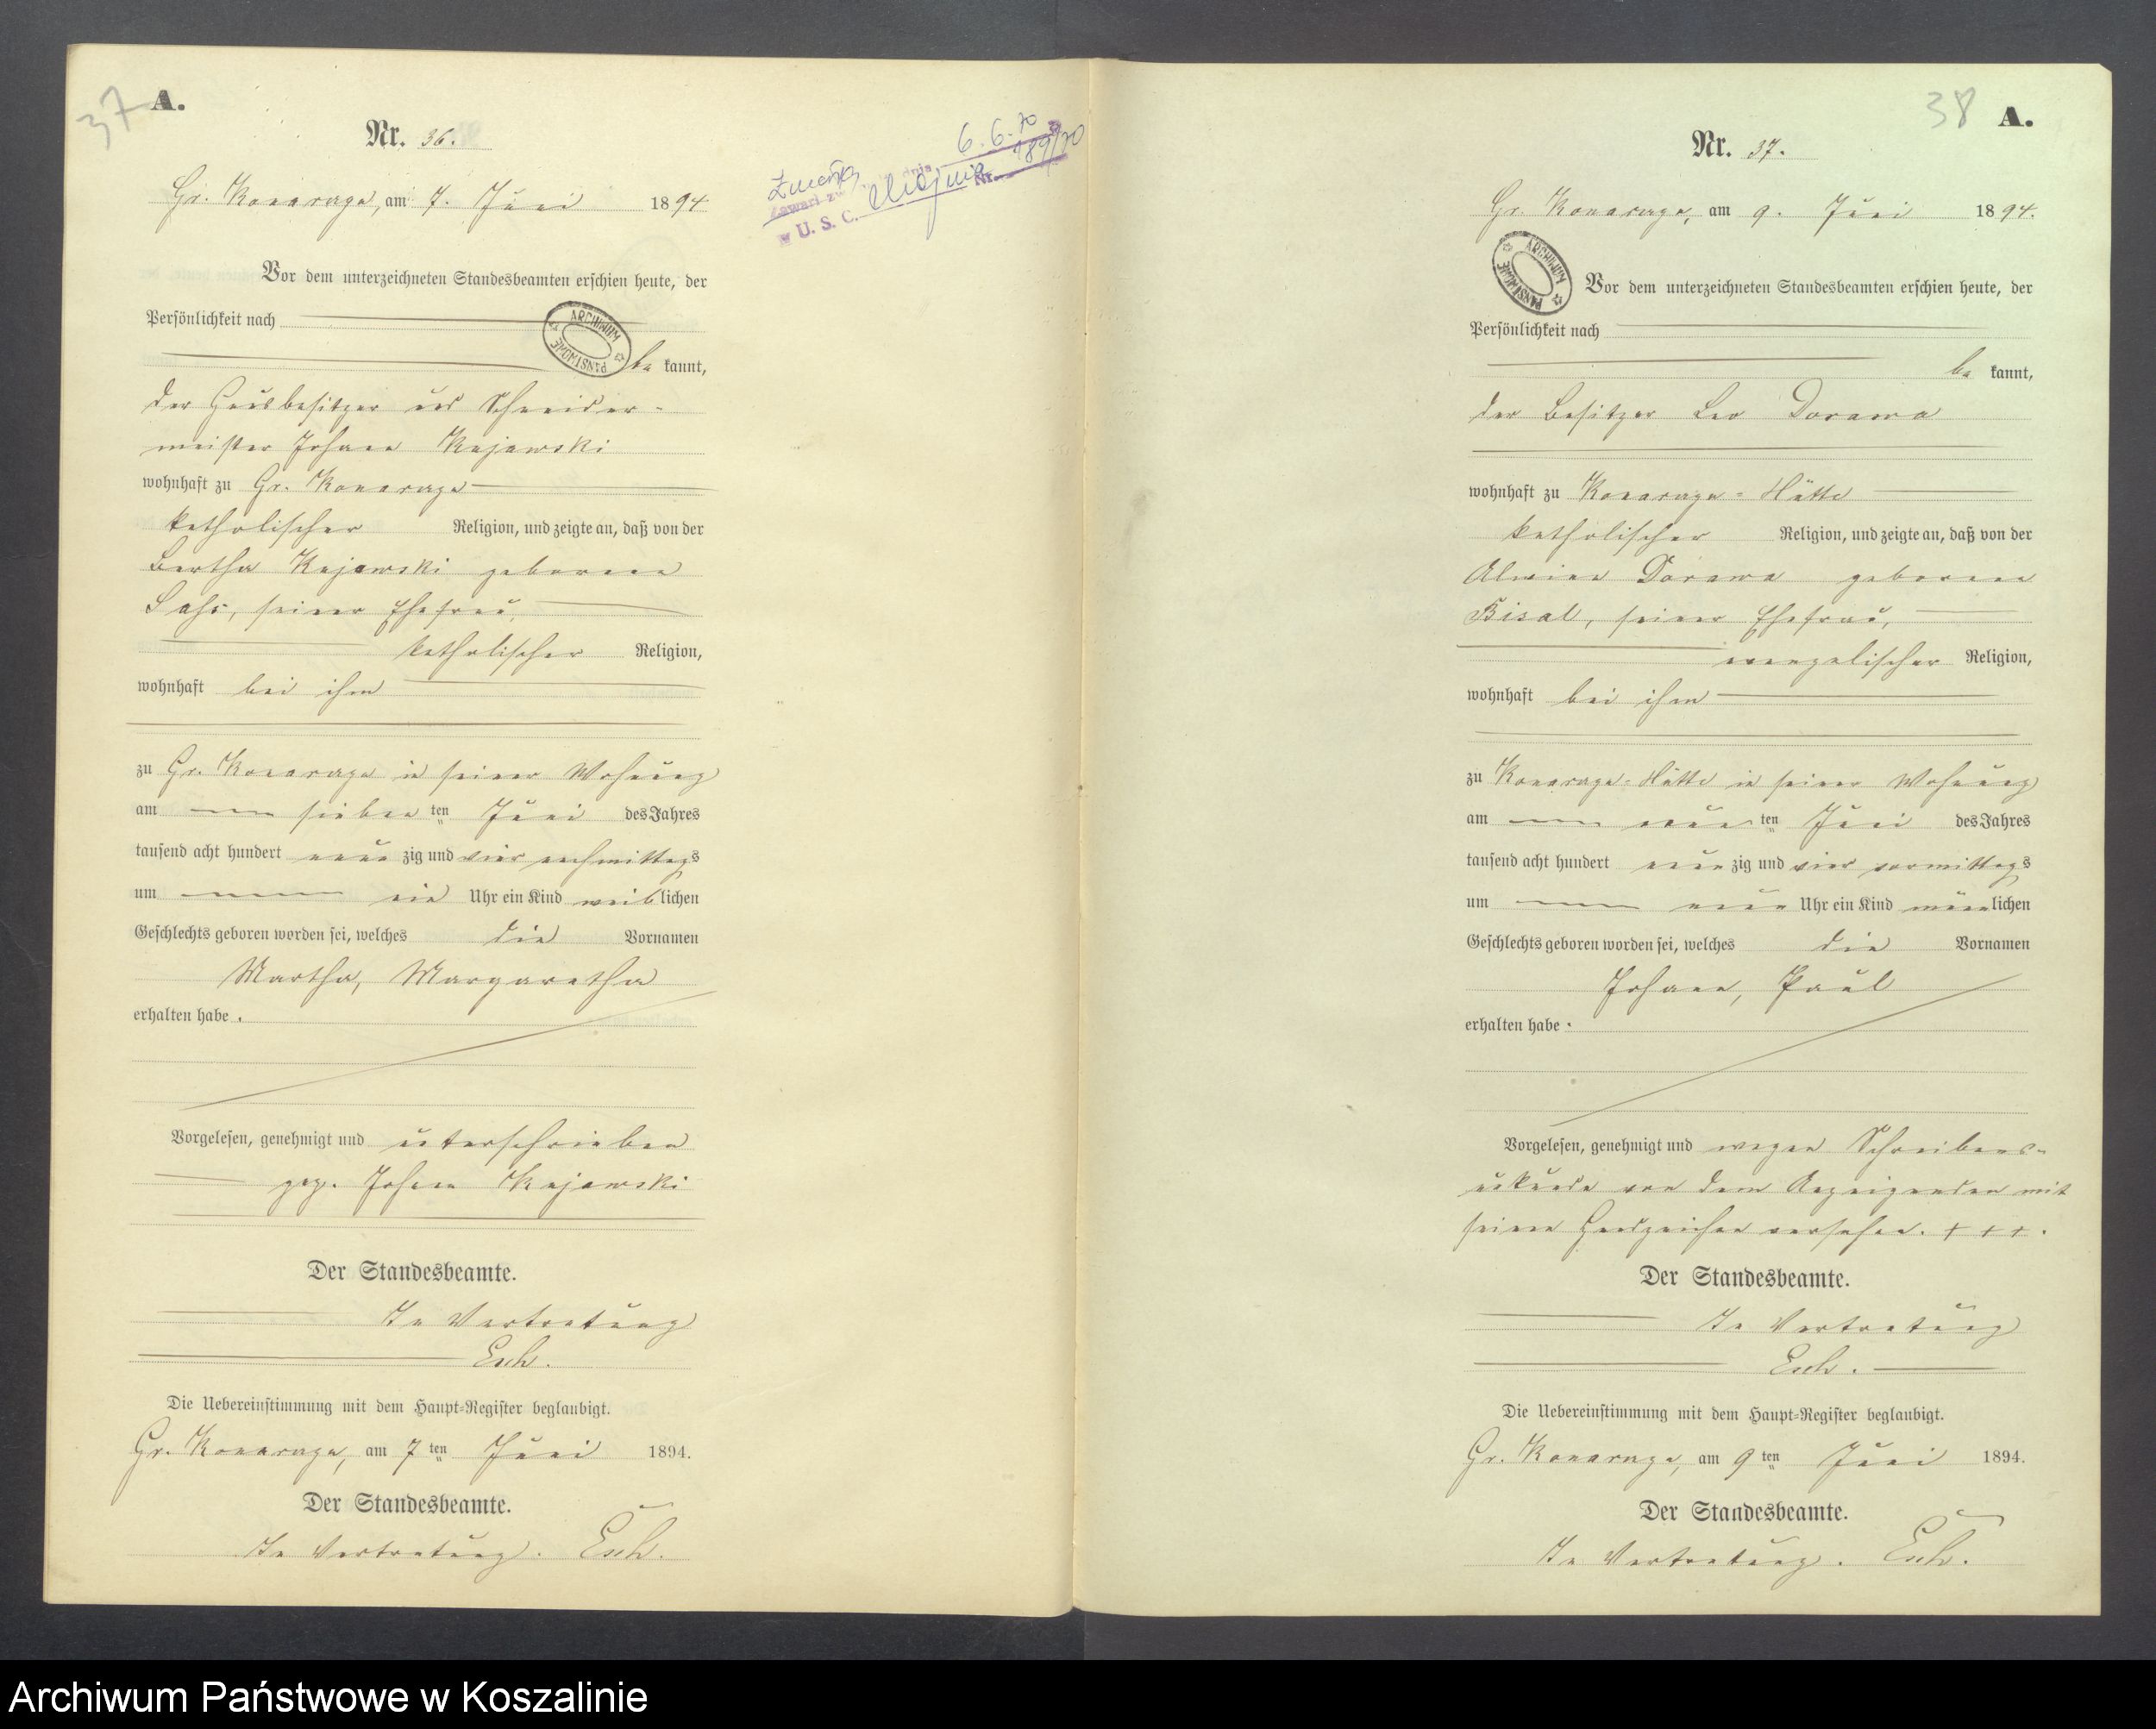 37
A.
Nr. 36.
Gr. Konarzyn, am 7. Juni 1894
Vor dem unterzeichneten Standesbeamten erschien heute, der
Persönlichkeit nach
be kannt,
der Hausbesitzer und Schneider-
meister Johann Kujawski
wohnhaft zu Gr. Konarzyn
katholischer Religion, und zeigte an, daß von der
Bertha Kujawski geborene
Sahs, seiner Ehefrau,
katholischer Religion,
wohnhaft bei ihm
zu Gr. Konarzyn in seiner Wohnung
am sieben ten Juni des Jahres
tausend acht hundert neun zig und vier nachmittags
um ein Uhr ein Kind weiblichen
Geschlechts geboren worden sei, welches die Vornamen
Martha, Margaretha
erhalten habe.
Vorgelesen, genehmigt und unterschrieben
gez. Johann Kujawski
Der Standesbeamte.
In Vertretung
Esch.
Die Uebereinstimmung mit dem Haupt-Register beglaubigt.
Gr. Konarzyn, am 7 ten Juni 1894.
Der Standesbeamte.
In Vertretung. Esch.
6.6.70
189/70
w U. S. C.
Nr.
ARCHIWUM PAŃSTWOWE
38
A.
Nr. 37.
Gr. Konarzyn, am 9. Juni 1894.
ARCHIWUM PAŃSTWOWE
Vor dem unterzeichneten Standesbeamten erschien heute, der
Persönlichkeit nach
be kannt,
der Besitzer Leo Dorawa
wohnhaft zu Konarzyn-Hütte
katholischer Religion, und zeigte an, daß von der
Alwine Dorawa geborene
Bisal, seiner Ehefrau,
evangelischer Religion,
wohnhaft bei ihm
zu Konarzyn-Hütte in seiner Wohnung
am neun ten Juni des Jahres
tausend acht hundert neun zig und vier vormittags
um neun Uhr ein Kind männlichen
Geschlechts geboren worden sei, welches die Vornamen
Johann, Paul
erhalten habe.
Vorgelesen, genehmigt und wegen Schreibens-
unkunde von dem Anzeigenden mit
seinen Handzeichen versehen. + + + .
Der Standesbeamte.
In Vertretung
Esch.
Die Uebereinstimmung mit dem Haupt-Register beglaubigt.
Gr. Konarzyn, am 9 ten Juni 1894.
Der Standesbeamte.
In Vertretung. Esch.
Archiwum Państwowe w Koszalinie